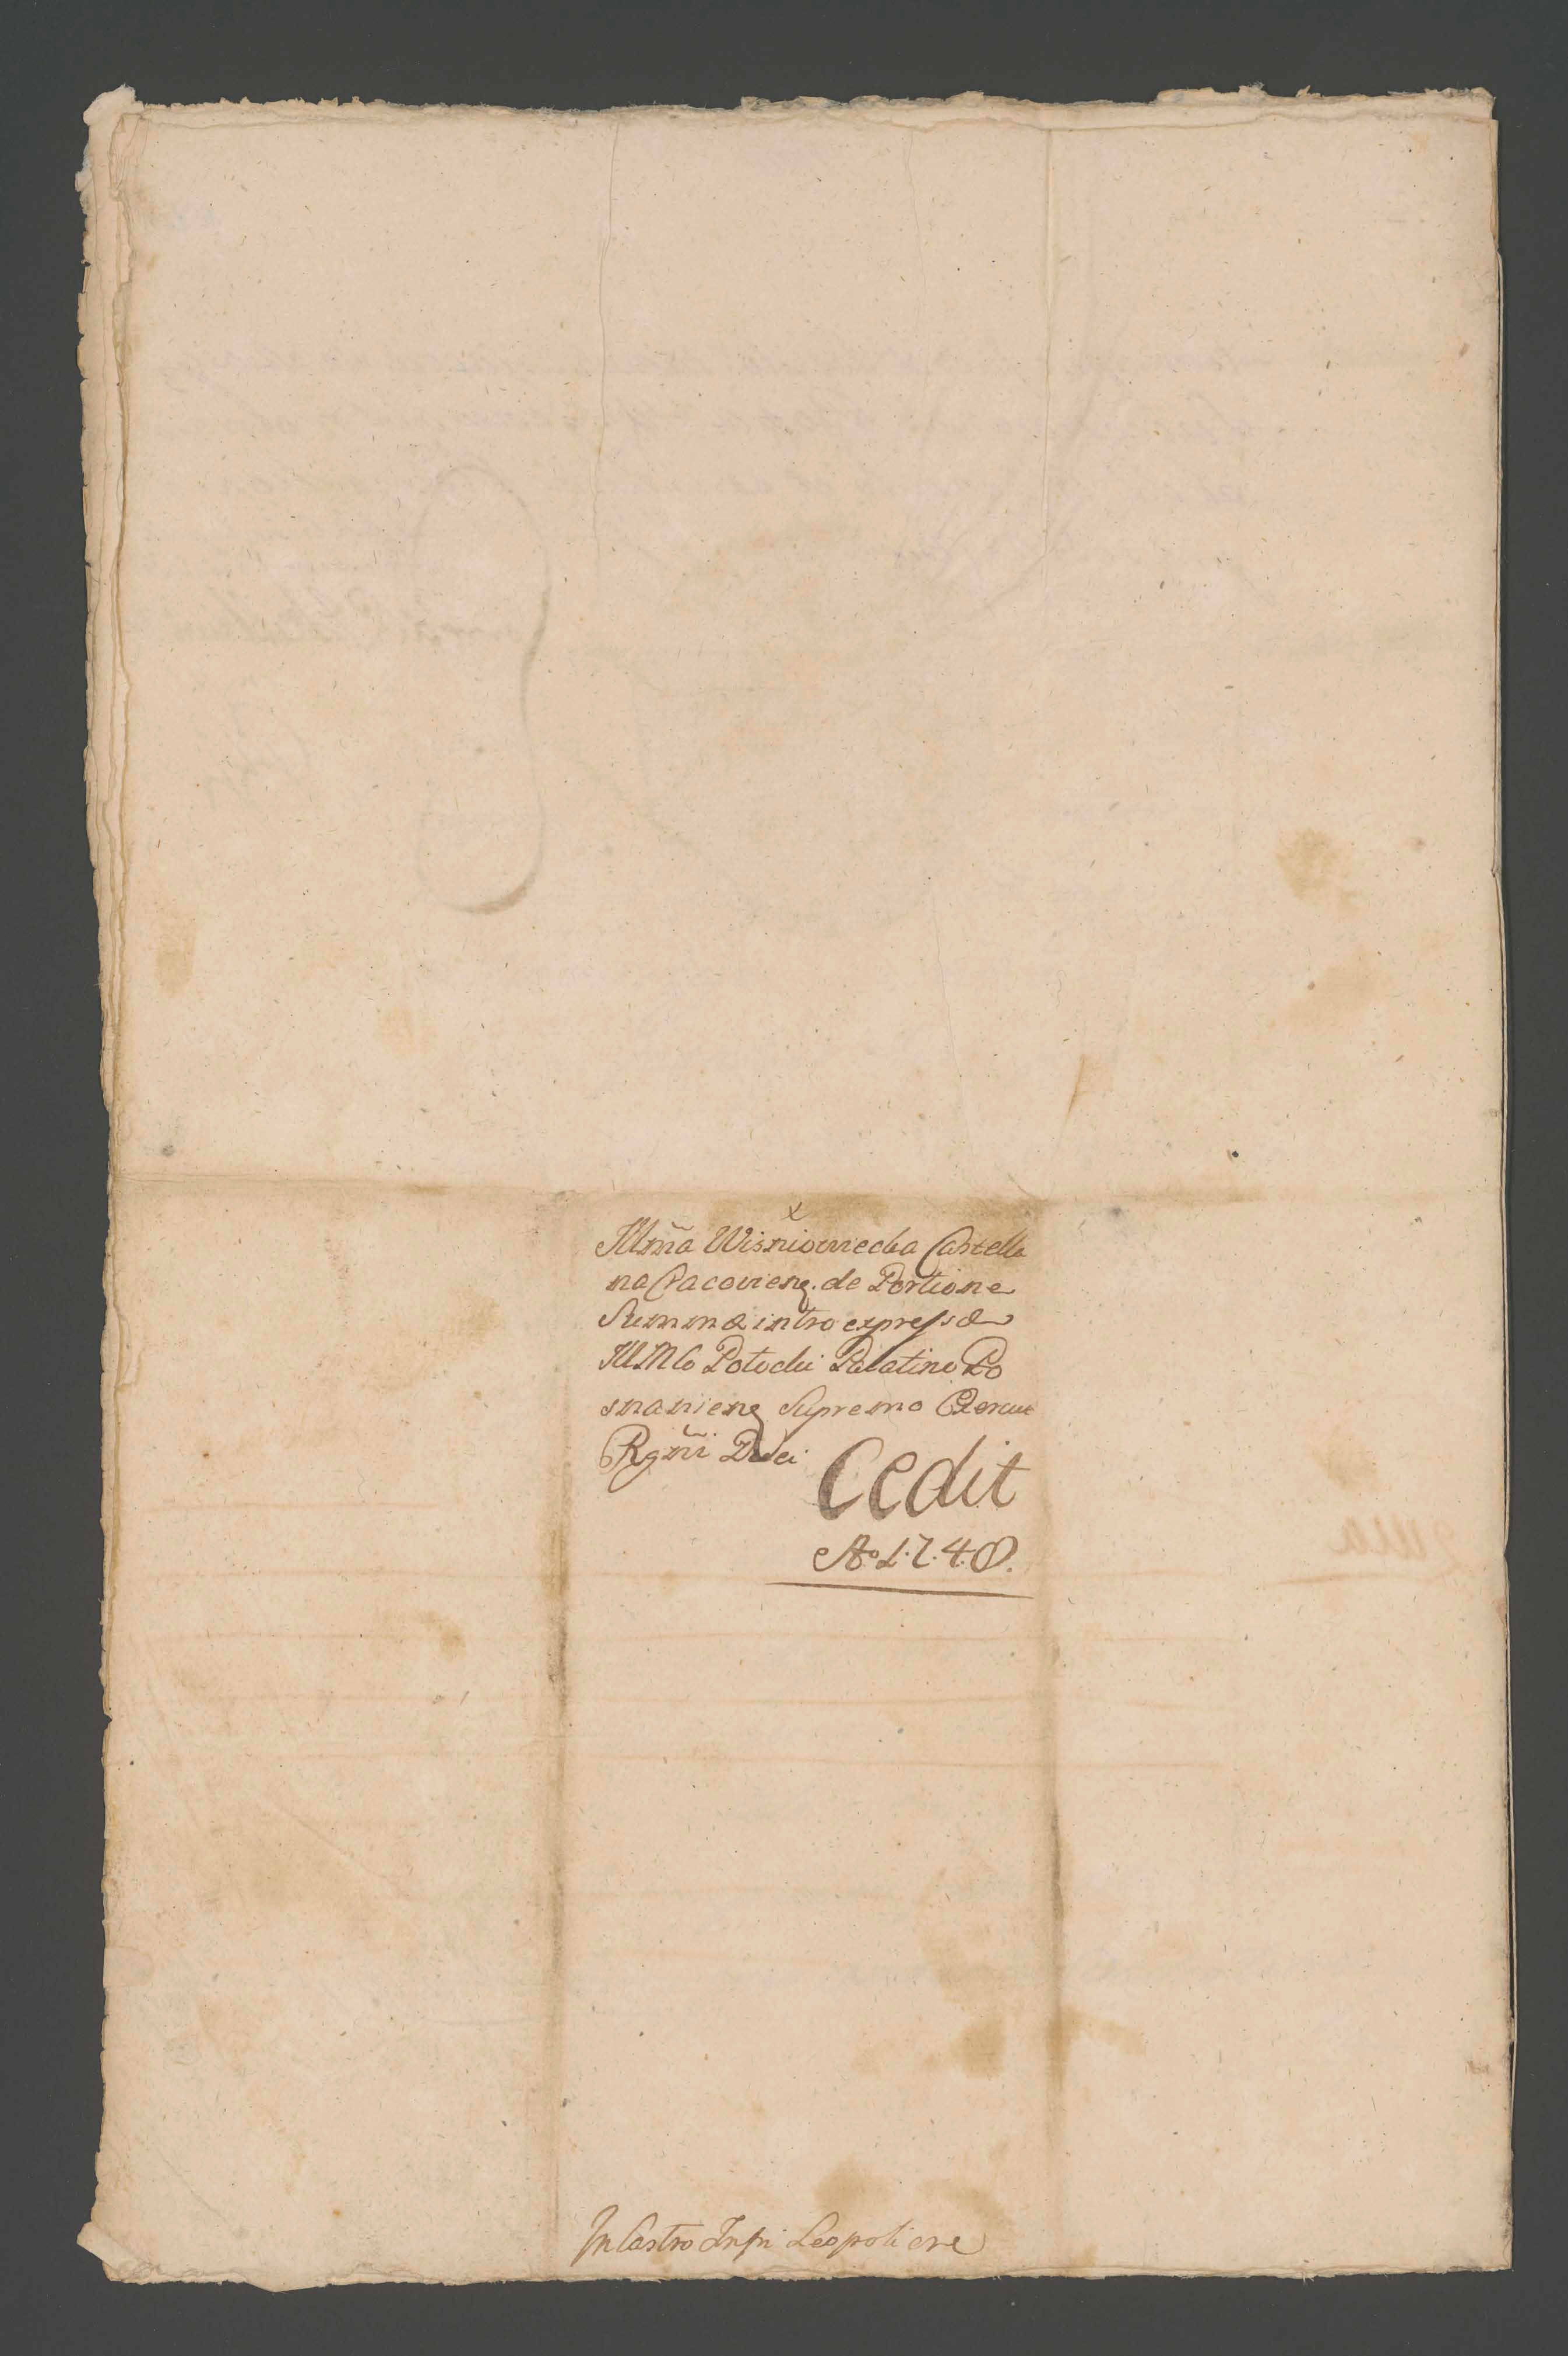 x
Illmã Wisniowiecka Castella
na Cracovienς. de Portione
Summæ intro expressæ
Ill Mlo Potocki Palatino Po
snanienς Supremo Exercit
Rgñi Duci
Cedit
Aº 1.7.4.8.
In Castro Infri Leopoliens